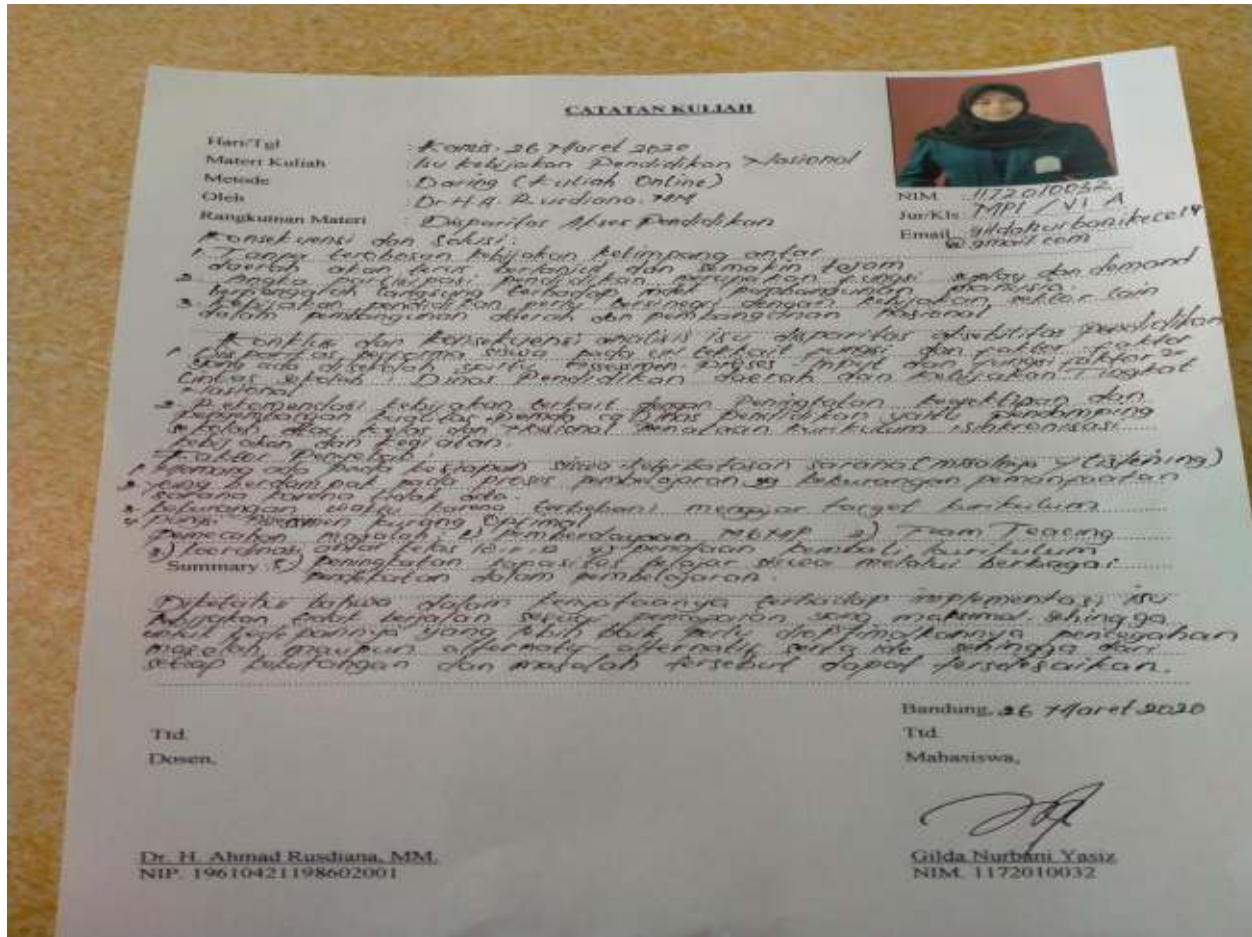 CATATAN KULIAH
Hari/Tgl : Kamis, 26 Maret 2020
Materi Kuliah : Isu kebijakan Pendidikan Nasional
Metode : Daring (Kuliah Online)
Oleh : Dr. H. A. Rusdiana, MM
Rangkuman Materi : Disparitas Akses Pendidikan
NIM : 1172010032
Jur/Kls : MPI / VI A
Email : gildanurbanikece14
@gmail.com
Konsekuensi dan Solusi:
1. Tanpa terobosan kebijakan ketimpang antar
daerah akan terus berlanjut dan semakin tajam
2. Angka partisipasi pendidikan merupakan fungsi suplay dan demand
langsung terhadap indek pembangunan manusia.
3. Kebijakan pendidikan perlu bersinegri dengan kebijakan sektor lain
dalam pembangunan daerah dan pembangunan nasional
Konklus dan Konsekuensi analisis isu disparitas pendidikan
1. Disparitas performa siswa pada uri terkait fungsi dan faktor-faktor
yang ada disekolah spirti Assesmen proses input dan fungsi faktor2
lintas sekolah : Dinas Pendidikan daerah dan kebijakan Tingkat
Nasional
2. Rekomendasi kebijakan terkait dengan Peningkatan dan
Pendidikan yaitu pendamping
sekolah atau kelas dan penataan kurikulum sinkronisasi
kebijakan dan kegiatan.
Faktor Penyebab:
1. Memang ada pada kesiapan siswa keterbatasan sarana (misalnya listening)
2. yang berdampak pada proses pembelajaran yg kekurangan pemanfaatan
sarana karena tidak ada.
3. kekurangan waktu karena terbebani mengejar target kurikulum
4. Fungsi Assesmen kurang Optimal
Pemecahan masalah, 1) Pemberdayaan MGMP 2) Team Teacing
3) koordinasi antar kelas 10.11.12 4) penataan kembali kurikulum
Summary : 5) Peningkatan kapasitas pelajar siswa melalui berbagai
pendekatan dalam pembelajaran.
Diketahui bahwa dalam kenyataanya terhadap implementasi isu
kebijakan tidak berjalan sesuai yang maksimal sehingga
untuk kedepannya yang lebih baik perlu dioptimalkannya pencegahan
masalah maupun alternatif alternatif serta ide sehingga dari
setiap kekurangan dan masalah tersebut dapat terselesaikan.
Bandung, 26 Maret 2020
Ttd.
Dosen,
Ttd.
Mahasiswa,
Dr. H. Ahmad Rusdiana, MM.
NIP. 19610421198602001
Gilda Nurbani Yasiz
NIM. 1172010032